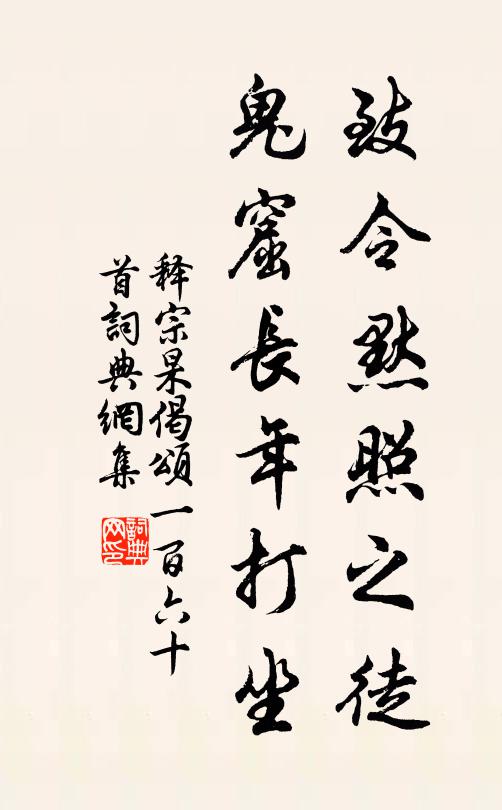 致令默照之徒
鬼窟長年打坐
释宗杲偈頌一百六十
首詞典網集
詞典網印